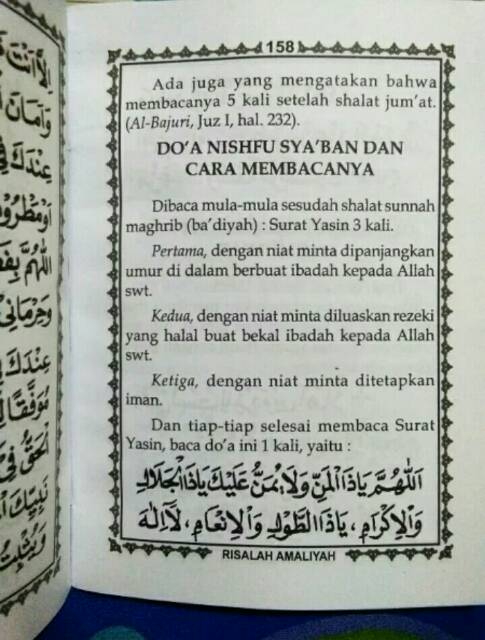 158
Ada juga yang mengatakan bahwa
membacanya 5 kali setelah shalat jum'at.
(Al-Bajuri, Juz I, hal. 232).
DO'A NISHFU SYA'BAN DAN
CARA MEMBACANYA
Dibaca mula-mula sesudah shalat sunnah
maghrib (ba'diyah) : Surat Yasin 3 kali.
Pertama, dengan niat minta dipanjangkan
umur di dalam berbuat ibadah kepada Allah
swt.
Kedua, dengan niat minta diluaskan rezeki
yang halal buat bekal ibadah kepada Allah
swt.
Ketiga, dengan niat minta ditetapkan
iman.
Dan tiap-tiap selesai membaca Surat
Yasin, baca do'a ini 1 kali, yaitu :
اَللّٰهُمَّ يَاذَا الْمَنِّ وَلَا يُمَنُّ عَلَيْكَ يَاذَا الْجَلَالِ
وَالْاِكْرَامِ، يَاذَا الطَّوْلِ وَالْاِنْعَامِ، لَآاِلٰهَ
RISALAH AMALIYAH
اِلَّا اَنْتَ
وَاَمَانَ
عِنْدَكَ فِي
اَوْ مَطْرُوْدًا
اَللّٰهُمَّ بِفَضْلِكَ
وَحِرْمَانِي
عِنْدَكَ
مُوَفَّقًا
الْحَقُّ فِي
نَبِيِّكَ
وَيُثْبِتُ